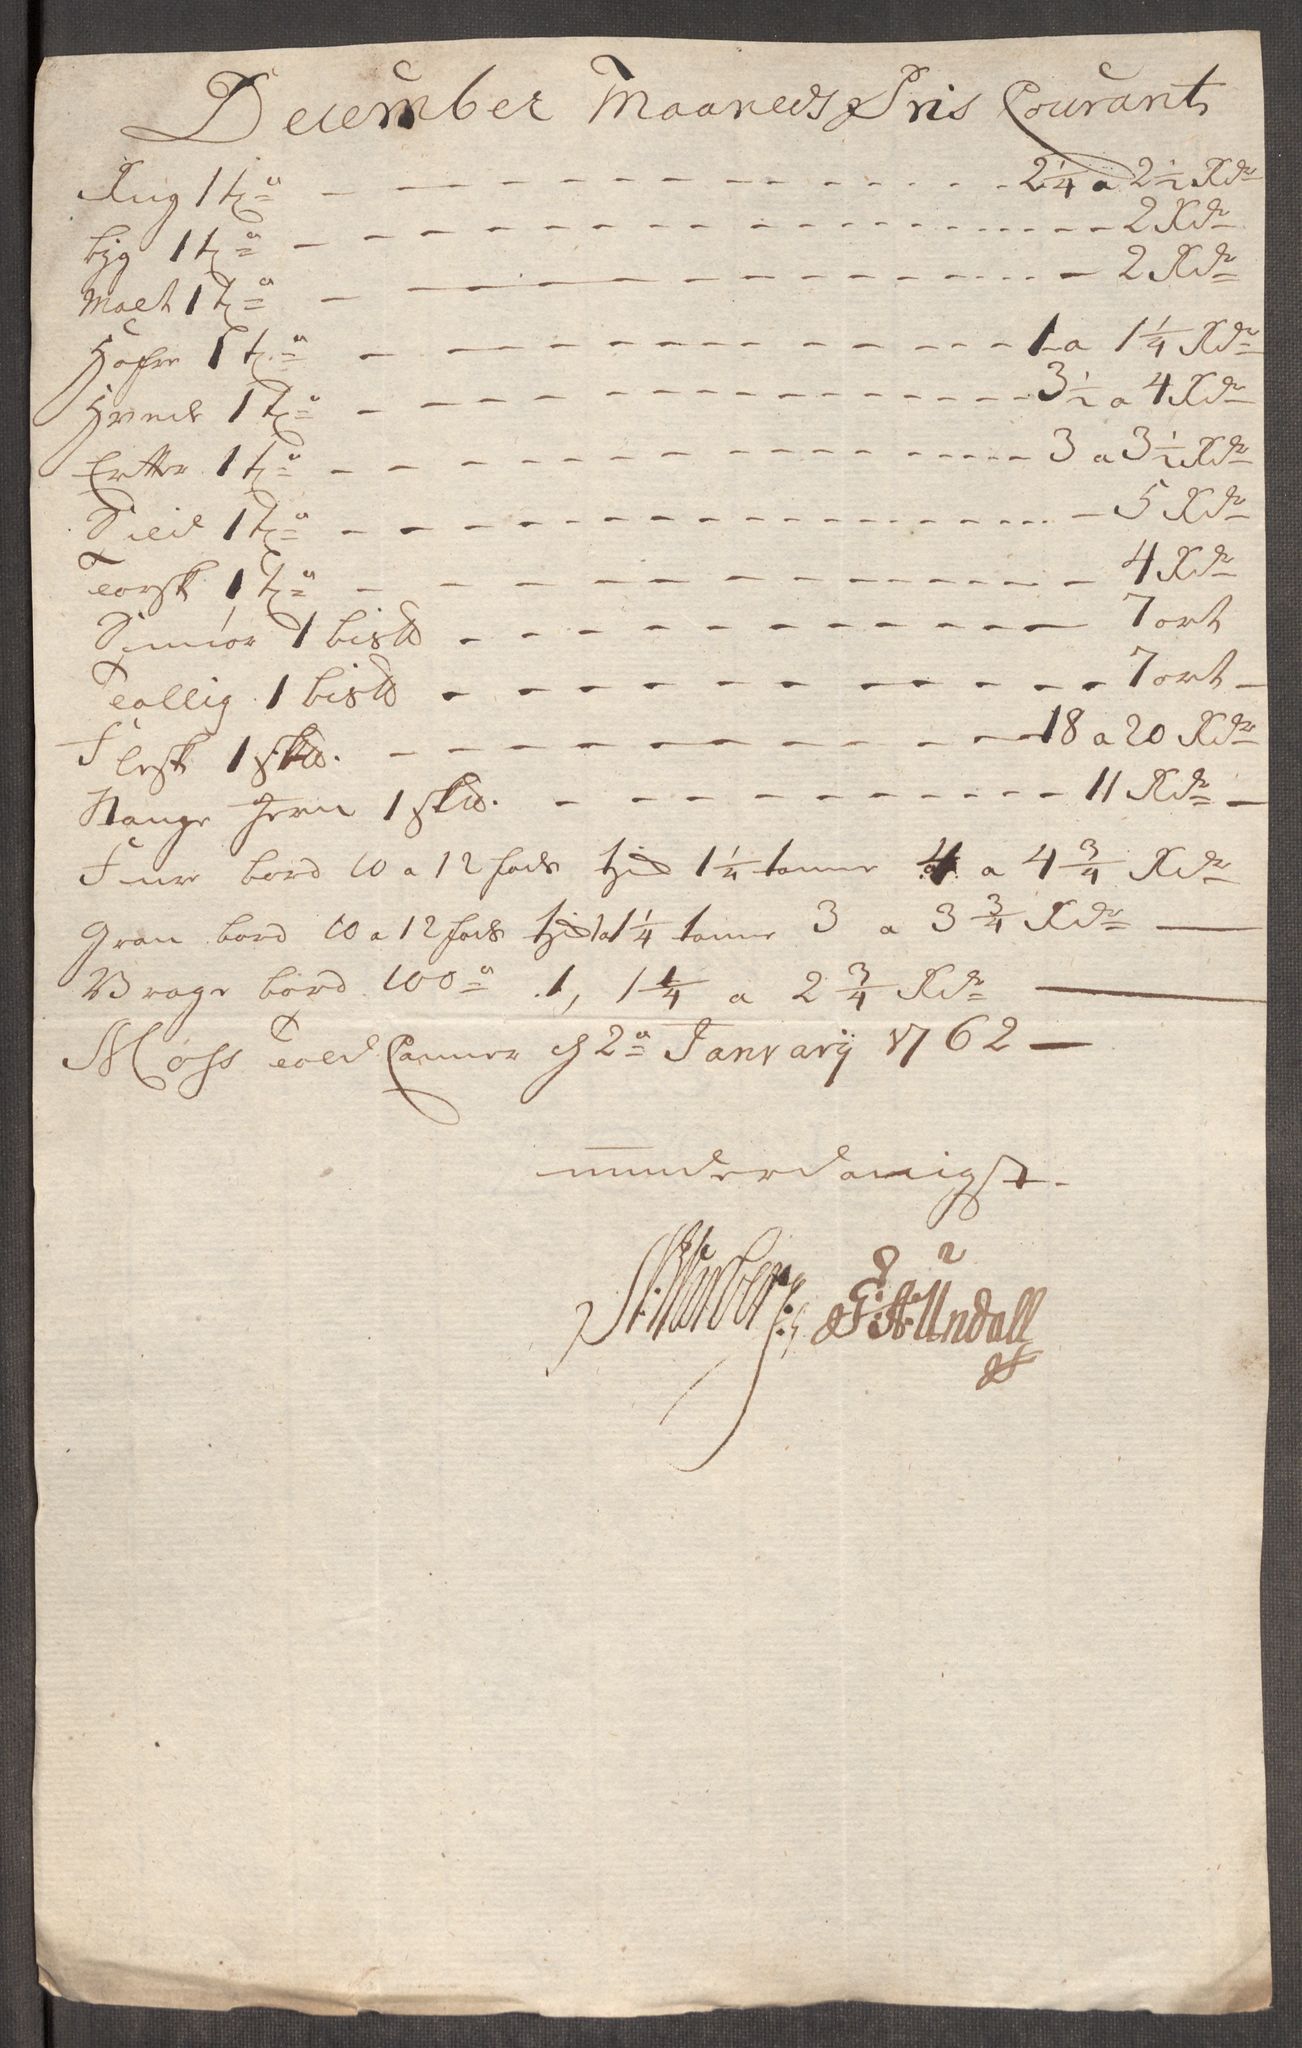 December Maaneds Pris Courant
Rug 1 tø - - - 2 1/4 a 2 1/2 Rdr
byg 1 tø - - - 2 Rdr
Malt 1 tø - - - 2 Rdr
Hafre 1 tø - - - 1 a 1 1/4 Rdr
Hvede 1 tø - - - 3 1/2 a 4 Rdr
Ertter 1 tø - - - 3 a 3 1/2 Rdr
Siild 1 tø - - - 5 Rdr
Torsk 1 tø - - - 4 Rdr
Smiór 1 bis℔ - - - 7 ort
Tallig 1 bis℔ - - - 7 ort -
Flesk 1 sk℔. - - - 18 a 20 Rdr
Stange Jern 1 sk℔. - - - 11 Rdr -
Furre bord 10 a 12 fods 1 1/4 tomme 4 a 4 3/4 Rdr
Gran bord 10 a 12 fods 1 1/4 tomme 3 a 3 3/4 Rdr -
Vrage bord 100 1, 1 1/4 a 2 3/4 Rdr -
Moss Told Cammer d 2 January 1762 -
underdanigst.
Undall